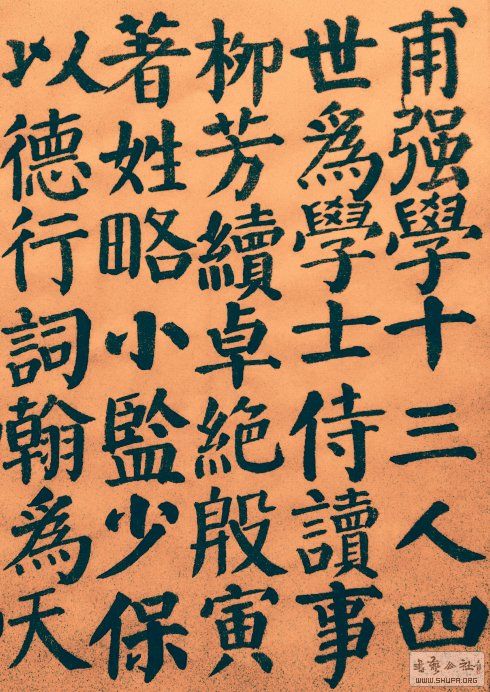 甫强學十三人四
世爲學士侍讀事
柳芳續卓絶殷寅
著姓略小監少保
以德行詞翰爲天
WWW.SHUFA.ORG